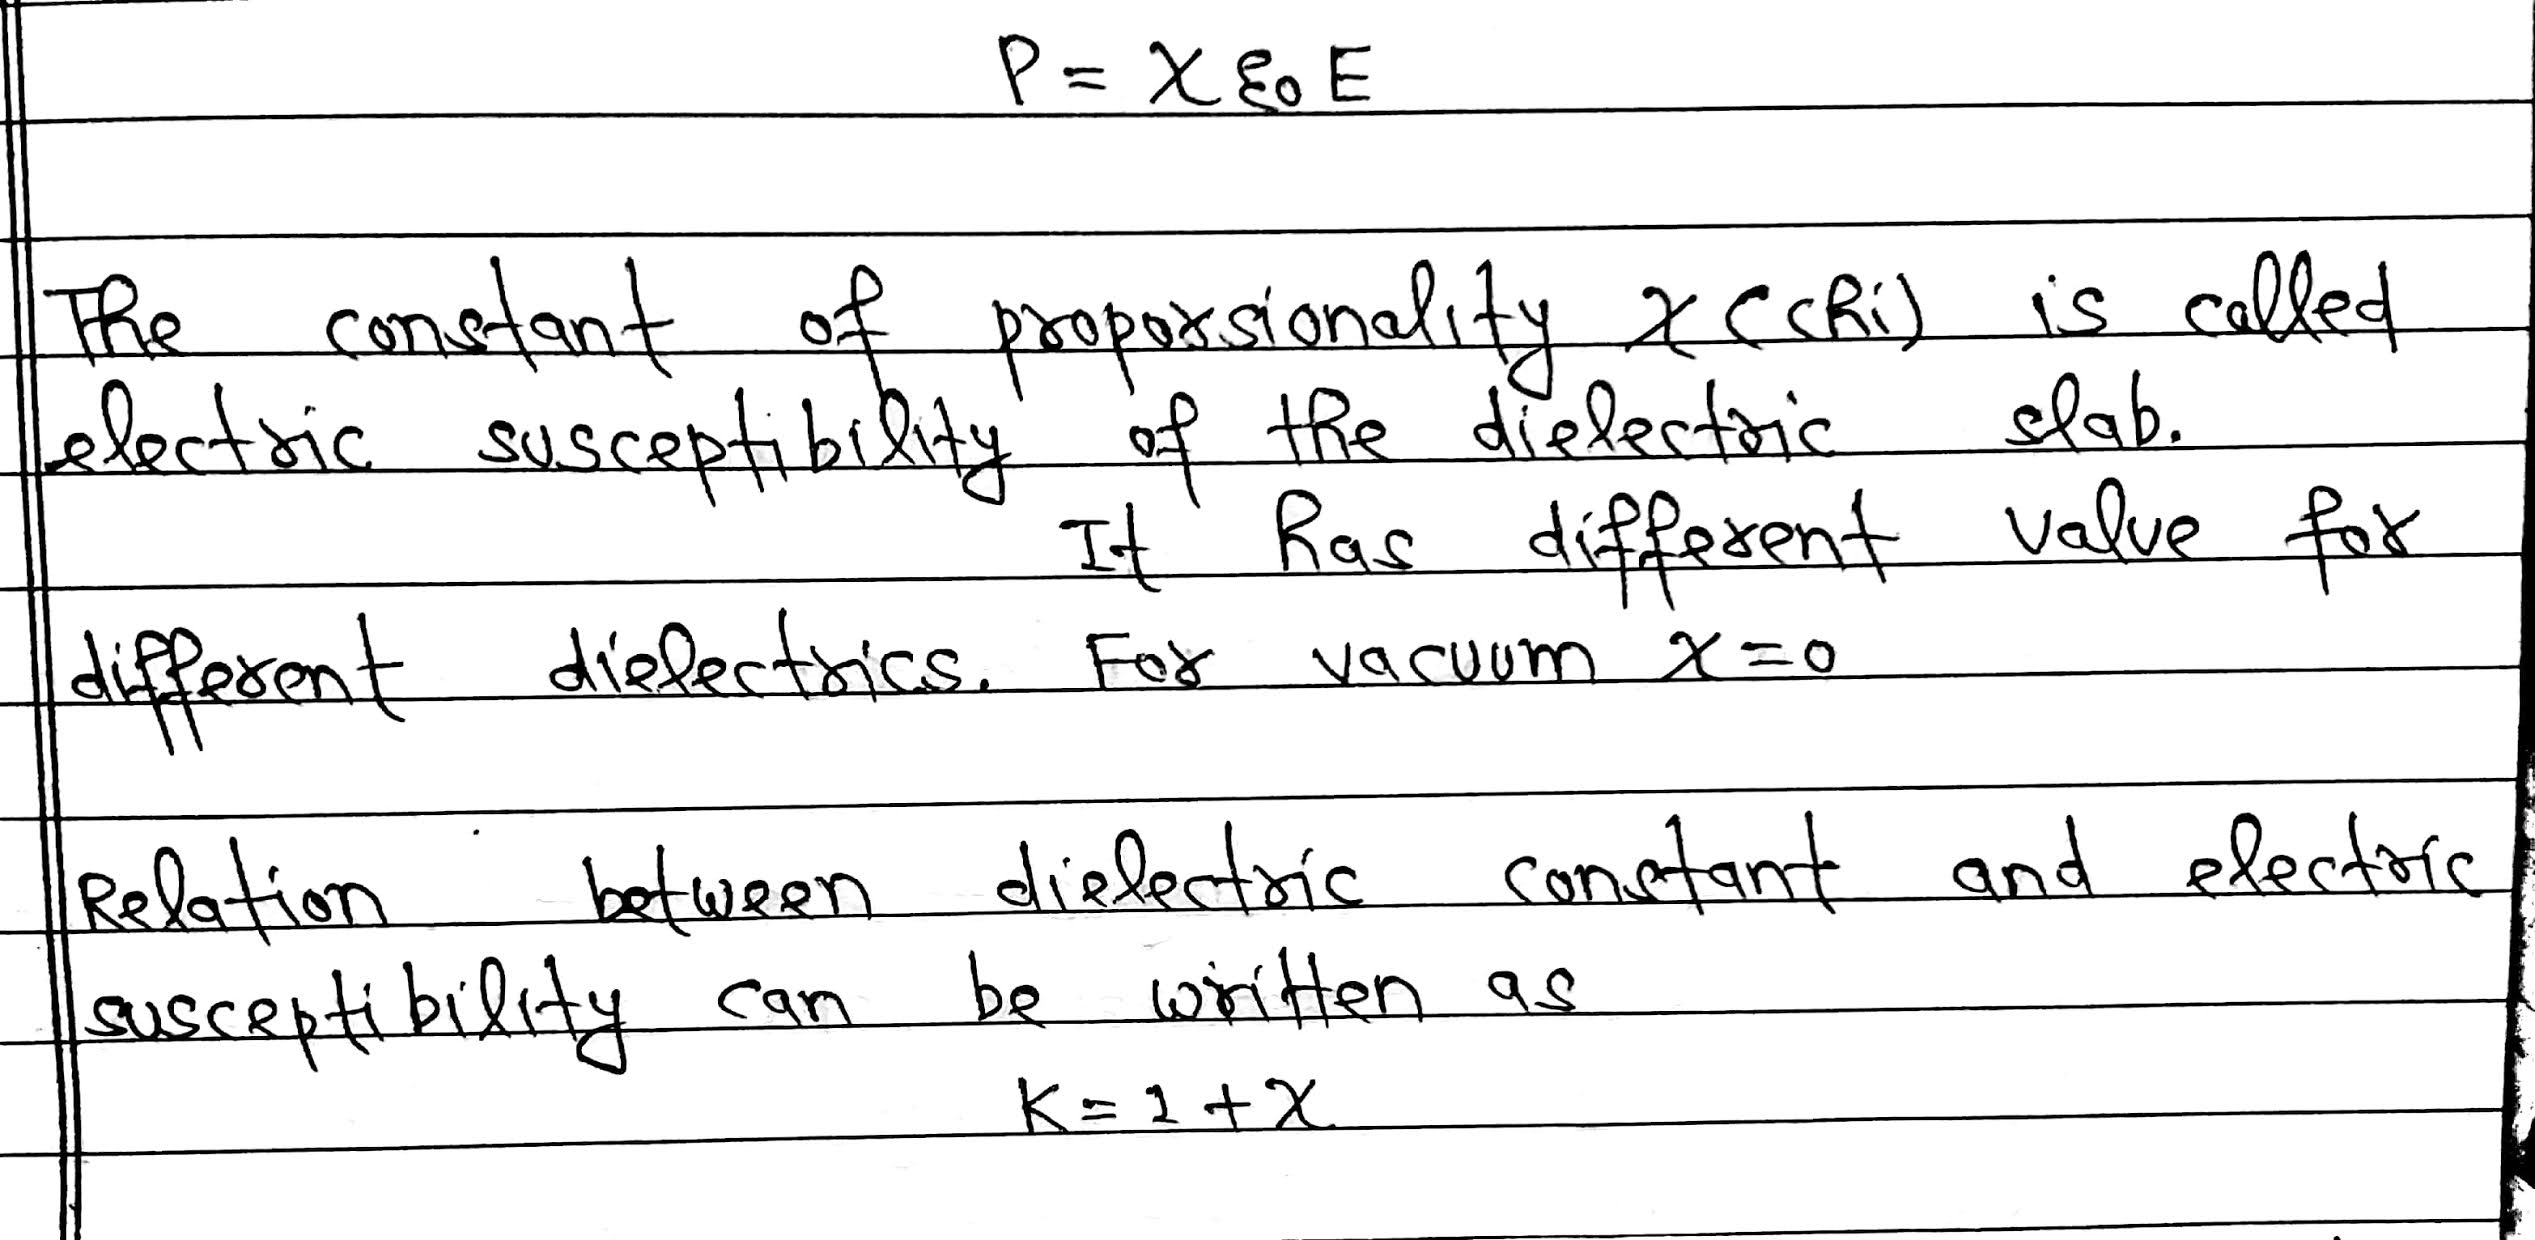 P = χ ε0 E
The constant of proporsionality χ (chi) is called
electric susceptibility of the dielectric slab.
It has different value for
different dielectrics. For vacuum χ=0
Relation between dielectric constant and electric
susceptibility can be written as
K = 1 + χ